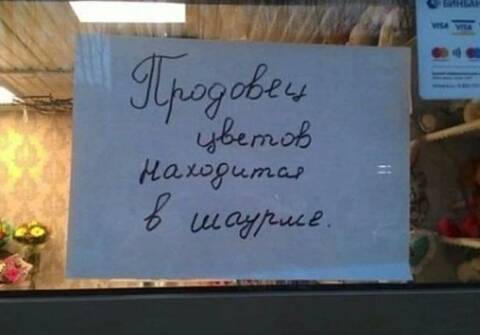 Продовец
цветов
находится
в шаурме.
БИНБАНК
VISA VISA